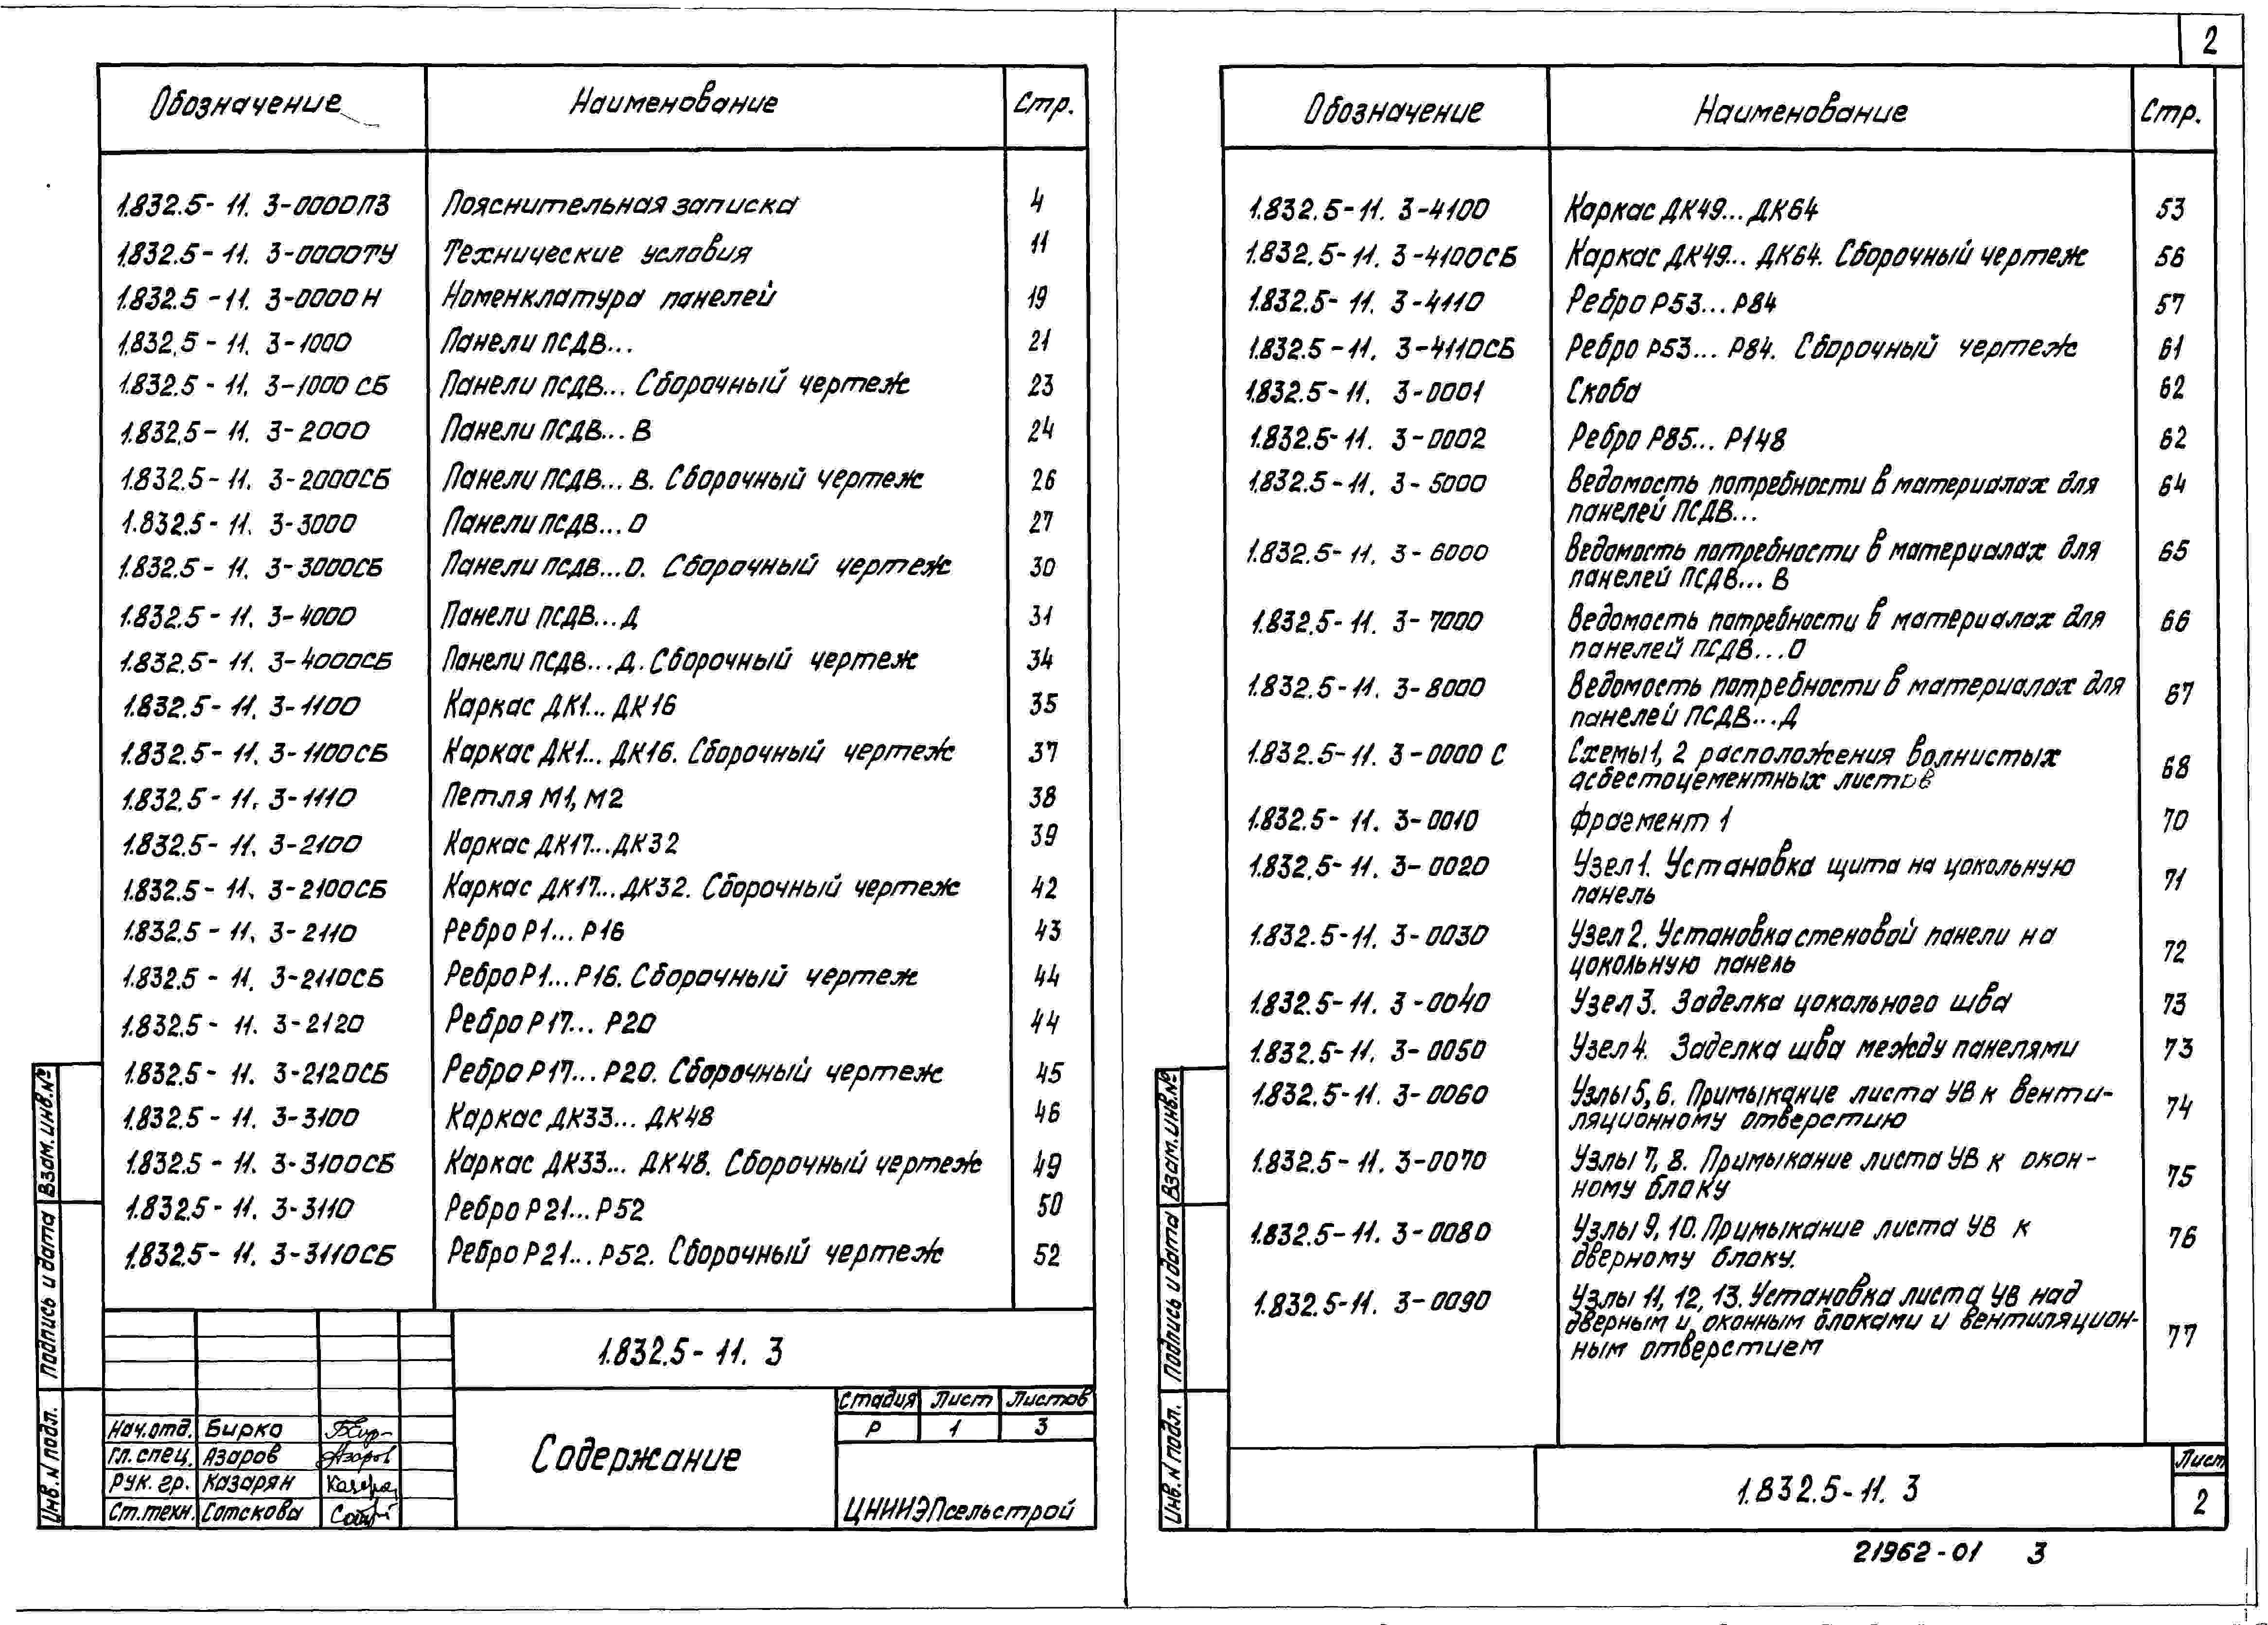 2
Обозначение Наименование Стр.
1.832.5-11. 3-0000ПЗ Пояснительная записка 4
1.832.5-11. 3-0000ТУ Технические условия 11
1.832.5-11. 3-0000Н Номенклатура панелей 19
1.832.5-11. 3-1000 Панели ПСДВ... 21
1.832.5-11. 3-1000СБ Панели ПСДВ... Сборочный чертеж 23
1.832.5-11. 3-2000 Панели ПСДВ...В 24
1.832.5-11. 3-2000СБ Панели ПСДВ...В. Сборочный чертеж 26
1.832.5-11. 3-3000 Панели ПСДВ...О 27
1.832.5-11. 3-3000СБ Панели ПСДВ...О. Сборочный чертеж 30
1.832.5-11. 3-4000 Панели ПСДВ...Д 31
1.832.5-11. 3-4000СБ Панели ПСДВ...Д. Сборочный чертеж 34
1.832.5-11. 3-1100 Каркас ДК1...ДК16 35
1.832.5-11. 3-1100СБ Каркас ДК1...ДК16. Сборочный чертеж 37
1.832.5-11. 3-1110 Петля М1, М2 38
1.832.5-11. 3-2100 Каркас ДК17...ДК32 39
1.832.5-11. 3-2100СБ Каркас ДК17...ДК32. Сборочный чертеж 42
1.832.5-11. 3-2110 Ребро Р1...Р16 43
1.832.5-11. 3-2110СБ Ребро Р1...Р16. Сборочный чертеж 44
1.832.5-11. 3-2120 Ребро Р17...Р20 44
1.832.5-11. 3-2120СБ Ребро Р17...Р20. Сборочный чертеж 45
1.832.5-11. 3-3100 Каркас ДК33...ДК48 46
1.832.5-11. 3-3100СБ Каркас ДК33...ДК48. Сборочный чертеж 49
1.832.5-11. 3-3110 Ребро Р21...Р52 50
1.832.5-11. 3-3110СБ Ребро Р21...Р52. Сборочный чертеж 52
1.832.5-11. 3
Стадия Лист Листов
Р 1 3
Содержание
Нач.отд. Бирко
Гл.спец. Азаров Азаров
Рук.гр. Казарян
Ст.техн. Сотскова
ЦНИИЭПсельстрой
Взам.инв.№
Подпись и дата
Инв.N подл.
Обозначение Наименование Стр.
1.832.5-11. 3-4100 Каркас ДК49...ДК64 53
1.832.5-11. 3-4100СБ Каркас ДК49...ДК64. Сборочный чертеж 56
1.832.5-11. 3-4110 Ребро Р53...Р84 57
1.832.5-11. 3-4110СБ Ребро Р53...Р84. Сборочный чертеж 61
1.832.5-11. 3-0001 Скоба 62
1.832.5-11. 3-0002 Ребро Р85...Р148 62
1.832.5-11. 3-5000 Ведомость потребности в материалах для 64
панелей ПСДВ...
1.832.5-11. 3-6000 Ведомость потребности в материалах для 65
панелей ПСДВ...В
1.832.5-11. 3-7000 Ведомость потребности в материалах для 66
панелей ПСДВ...О
1.832.5-11. 3-8000 Ведомость потребности в материалах для 67
панелей ПСДВ...Д
1.832.5-11. 3-0000С Схемы 1, 2 расположения волнистых 68
асбестоцементных листов
1.832.5-11. 3-0010 Фрагмент 1 70
1.832.5-11. 3-0020 Узел 1. Установка щита на цокольную 71
панель
1.832.5-11. 3-0030 Узел 2. Установка стеновой панели на 72
цокольную панель
1.832.5-11. 3-0040 Узел 3. Заделка цокольного шва 73
1.832.5-11. 3-0050 Узел 4. Заделка шва между панелями 73
1.832.5-11. 3-0060 Узлы 5, 6. Примыкание листа УВ к венти- 74
ляционному отверстию
1.832.5-11. 3-0070 Узлы 7, 8. Примыкание листа УВ к окон- 75
ному блоку
1.832.5-11. 3-0080 Узлы 9, 10. Примыкание листа УВ к 76
дверному блоку.
1.832.5-11. 3-0090 Узлы 11, 12, 13. Установка листа УВ над
дверным и оконным блоками и вентиляцион- 77
ным отверстием
1.832.5-11. 3
Лист
2
Взам.инв.№
Подпись и дата
Инв.N подл.
21962-01 3